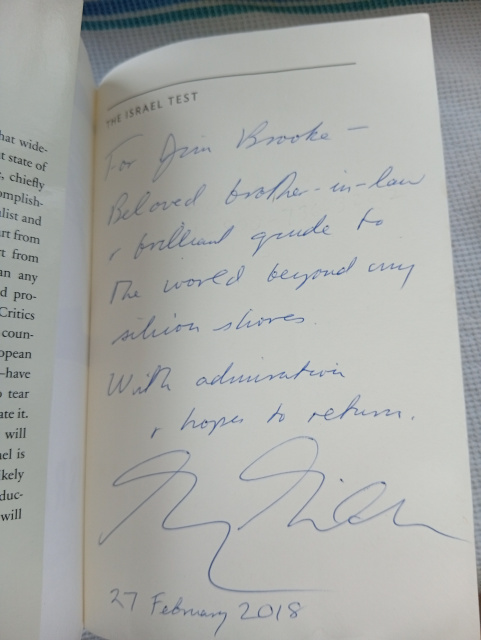 hat wide-
t state of
, chiefly
omplish-
list and
rt from
t from
an any
d pro-
Critics
coun-
opean
—have
o tear
ate it.
will
el is
kely
duc-
will
THE ISRAEL TEST
For Jim Brooke –
Beloved brother-in-law
& brilliant guide to
the world beyond my
silicon shores.
With admiration
& hopes to return.
27 February 2018